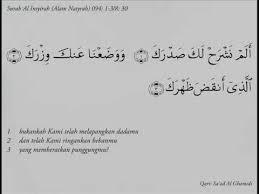 Surah Al Insyirah (Alam Nasyrah) 094: 1-3/8: 30
أَلَمْ نَشْرَحْ لَكَ صَدْرَكَ ۝١ وَوَضَعْنَا عَنكَ وِزْرَكَ ۝٢
ٱلَّذِىٓ أَنقَضَ ظَهْرَكَ ۝٣
1 bukankah Kami telah melapangkan dadamu
2 dan telah Kami ringankan bebanmu
3 yang memberatkan punggungmu?
Qari: Sa'ad Al Ghamedi